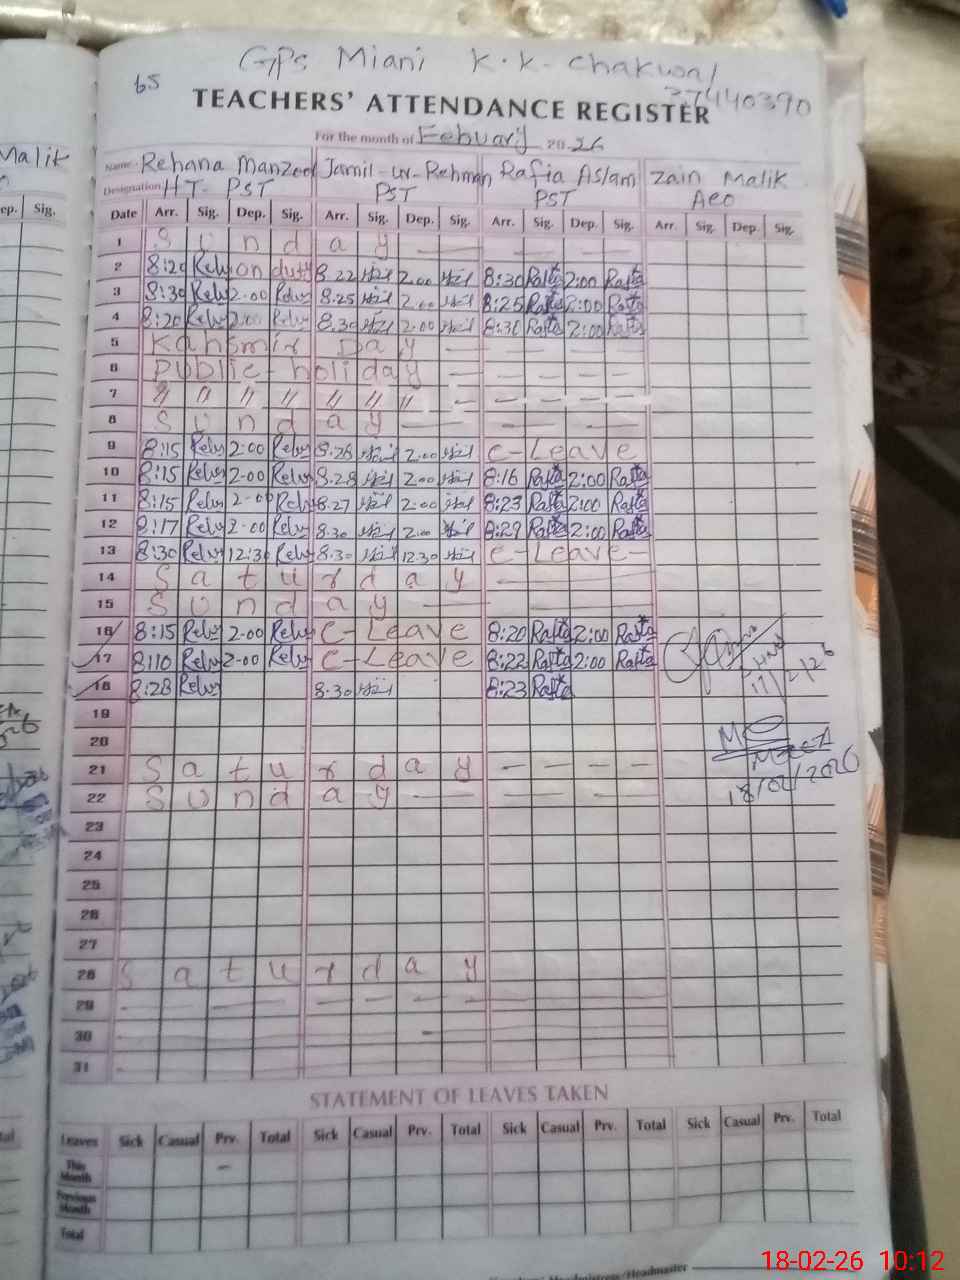 GPS Miani K.K-Chakwal
65
37440390
TEACHERS' ATTENDANCE REGISTER
For the month of Febuary 2026
Name: Rehana Manzoor Jamil-ur-Rehman Rafia Aslam Zain Malik
Designation HT- PST PST PST AEO
Date Arr. Sig. Dep. Sig. Arr. Sig. Dep. Sig. Arr. Sig. Dep. Sig. Arr. Sig. Dep. Sig.
1 Sunday
2 8:20 on duty 8.22 2.00 8:30 Rafia 2:00 Rafia
3 8:30 2-00 8.25 2.00 8:25 Rafia 2:00 Rafia
4 8:20 2:00 8.30 2.00 8:30 Rafia 2:00 Rafia
5 Kahsmir Day
6 Public-holiday
7 〃 〃 〃 〃 〃 〃 〃
8 Sunday
9 8:15 2-00 8.28 2.00 C-Leave
10 8:15 2-00 8.28 2.00 8:16 Rafia 2:00 Rafia
11 8:15 2-00 8.27 2.00 8:23 Rafia 2:00 Rafia
12 8:17 2-00 8.30 2.00 8:29 Rafia 2:00 Rafia
13 8:30 12:30 8.30 12.30 C-Leave-
14 Saturday
15 Sunday
16 8:15 2-00 C-Leave 8:20 Rafia 2:00 Rafia
17 8:10 2-00 C-Leave 8:22 Rafia 2:00 Rafia
17/2/26
18 8:28 8.30 8:23 Rafia
19
20
21 Saturday
18/02/2026
22 Sunday
23
24
25
26
27
28 Saturday
29
30
31
STATEMENT OF LEAVES TAKEN
Leaves Sick Casual Prv. Total Sick Casual Prv. Total Sick Casual Prv. Total Sick Casual Prv. Total
This Month -
Previous Month
Total
Headmistress/Headmaster
18-02-26 10:12
Malik
ep. Sig.